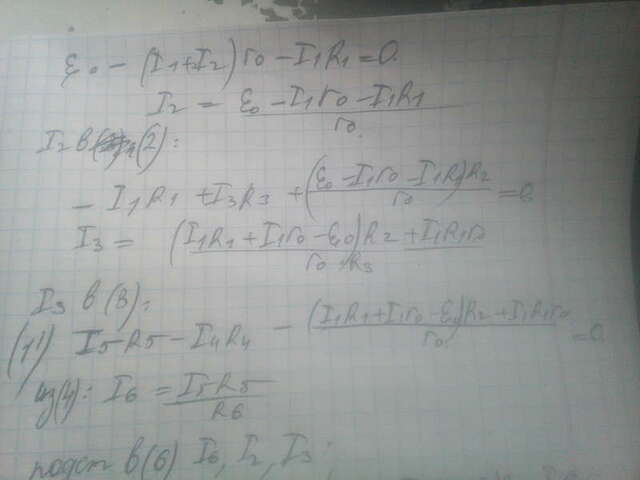 ε₀ − (I₁+I₂)r₀ − I₁R₁ = 0.
I₂ = (ε₀ − I₁r₀ − I₁R₁)/r₀.
I₂ в (2):
− I₁R₁ + I₃R₃ + (ε₀ − I₁r₀ − I₁R₁)R₂/r₀ = 0
I₃ = ((I₁R₁ + I₁r₀ − ε₀)R₂ + I₁R₁r₀)/(r₀ R₃)
I₃ в (3):
(1') I₅R₅ − I₄R₄ − ((I₁R₁ + I₁r₀ − ε₀)R₂ + I₁R₁r₀)/r₀ = 0.
из(4): I₆ = I₅R₅/R₆
подст в (6) I₆, I₂, I₃: